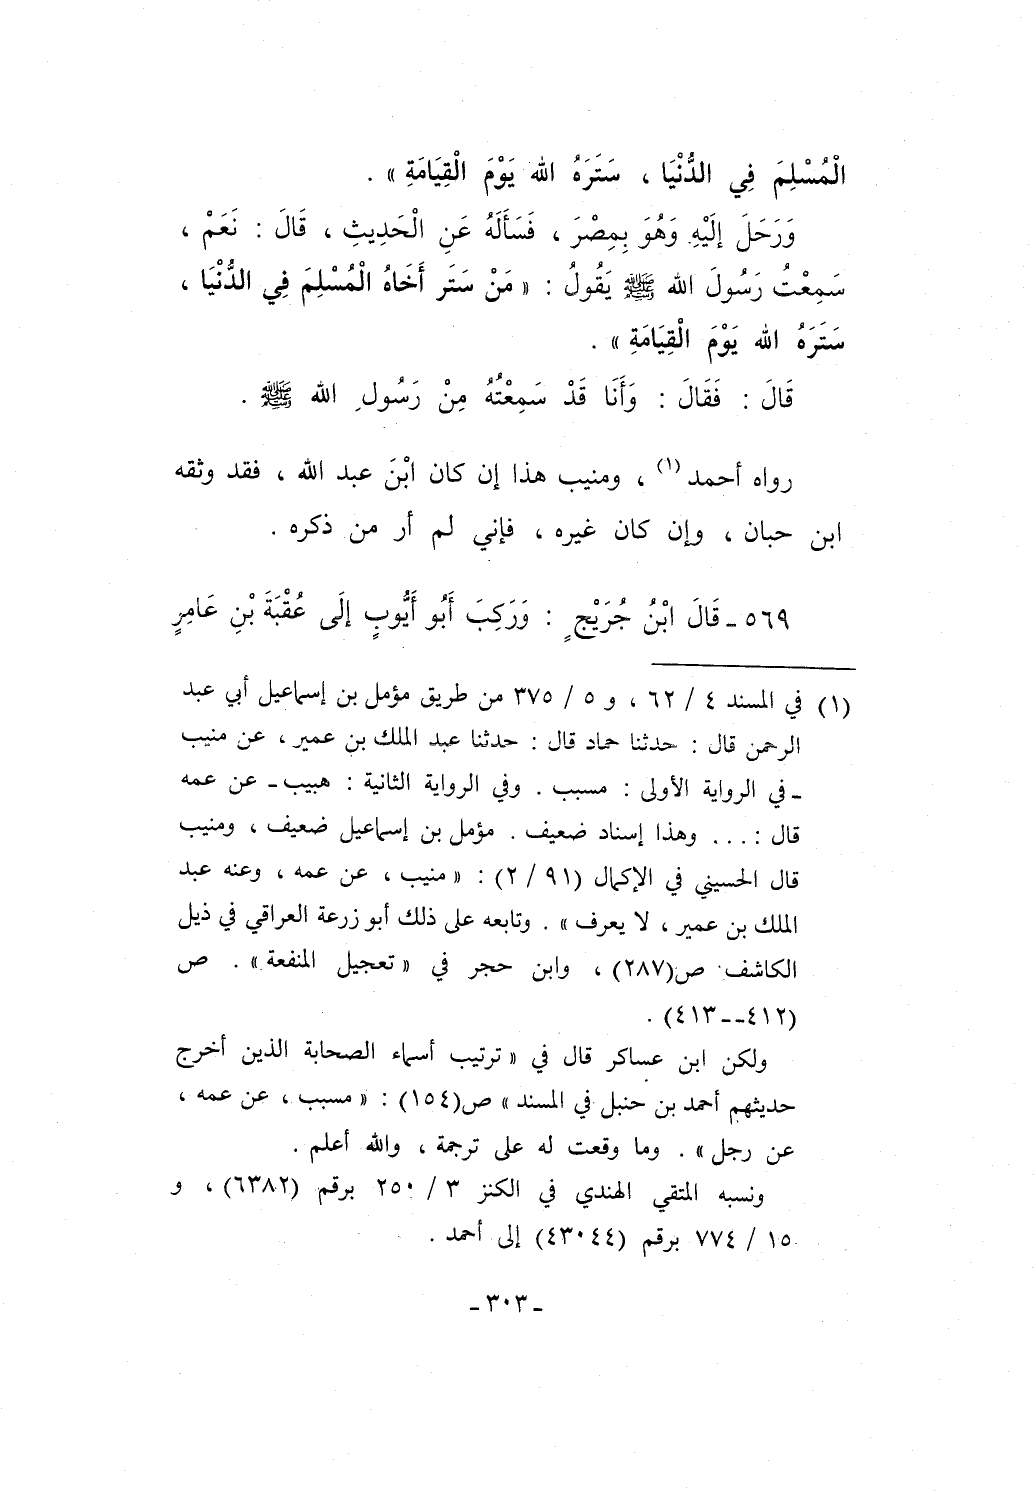 الْمُسْلِمَ فِي الدُّنْيَا ، سَتَرَهُ الله يَوْمَ الْقِيَامَةِ » .
وَرَحَلَ إِلَيْهِ وَهُوَ بِمِصْرَ ، فَسَأَلَهُ عَنِ الْحَدِيثِ ، قَالَ : نَعَمْ ،
سَمِعْتُ رَسُولَ الله ﷺ يَقُولُ : « مَنْ سَتَر أَخَاهُ الْمُسْلِمَ فِي الدُّنْيَا ،
سَتَرَهُ الله يَوْمَ الْقِيَامَةِ » .
قَالَ : فَقَالَ : وَأَنَا قَدْ سَمِعْتُهُ مِنْ رَسُولِ الله ﷺ .
رواه أحمد (١) ، ومنيب هذا إن كان ابْنَ عبد الله ، فقد وثقه
ابن حبان ، وإن كان غيره ، فإني لم أر من ذكره .
٥٦٩ ـ قَالَ ابْنُ جُرَيْجٍ : وَرَكِبَ أَبُو أَيُّوبٍ إِلَى عُقْبَةَ بْنِ عَامِرٍ
(١) في المسند ٤ / ٦٢ ، و ٥ / ٣٧٥ من طريق مؤمل بن إسماعيل أبي عبد
الرحمن قال : حدثنا حماد قال : حدثنا عبد الملك بن عمير ، عن منيب
ـ في الرواية الأولى : مسبب . وفي الرواية الثانية : هبيب ـ عن عمه
قال : ... وهذا إسناد ضعيف . مؤمل بن إسماعيل ضعيف ، ومنيب
قال الحسيني في الإكمال (٩١ / ٢) : « منيب ، عن عمه ، وعنه عبد
الملك بن عمير ، لا يعرف » . وتابعه على ذلك أبو زرعة العراقي في ذيل
الكاشف ص(٢٨٧) ، وابن حجر في « تعجيل المنفعة » . ص
(٤١٢ــ٤١٣) .
ولكن ابن عساكر قال في « ترتيب أسماء الصحابة الذين أخرج
حديثهم أحمد بن حنبل في المسند » ص(١٥٤) : « مسبب ، عن عمه ،
عن رجل » . وما وقعت له على ترجمة ، والله أعلم .
ونسبه المتقي الهندي في الكنز ٣ / ٢٥٠ برقم (٦٣٨٢) ، و
١٥ / ٧٧٤ برقم (٤٣٠٤٤) إلى أحمد .
ـ ٣٠٣ ـ